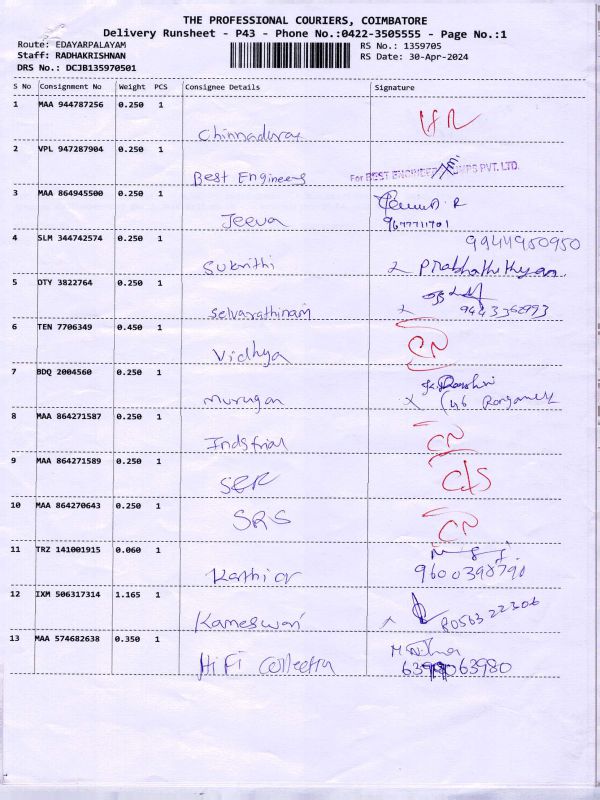 THE PROFESSIONAL COURIERS, COIMBATORE
Delivery Runsheet - P43 - Phone No.:0422-3505555 - Page No.:1
Route: EDAYARPALAYAM RS No.: 1359705
Staff: RADHAKRISHNAN RS Date: 30-Apr-2024
DRS No.: DCJB135970501
S No Consignment No Weight PCS Consignee Details Signature
1 MAA 944787256 0.250 1
Chinnadurai
2 VPL 947287904 0.250 1
Best Engineers For BEST ENGINEERS PUMPS PVT. LTD.
3 MAA 864945500 0.250 1
Jeeva
4 SLM 344742574 0.250 1 9944950950
Sukrithi Prabhathithyan
5 OTY 3822764 0.250 1
Selvarathinam
6 TEN 7706349 0.450 1
Vidhya CN
7 BDQ 2004560 0.250 1
Murugan
8 MAA 864271587 0.250 1
Indstrial CN
9 MAA 864271589 0.250 1
SER C/S
10 MAA 864270643 0.250 1
SRS CN
11 TRZ 141001915 0.060 1
9600398790
12 IXM 506317314 1.165 1
Kameswari
13 MAA 574682638 0.350 1
HiFi